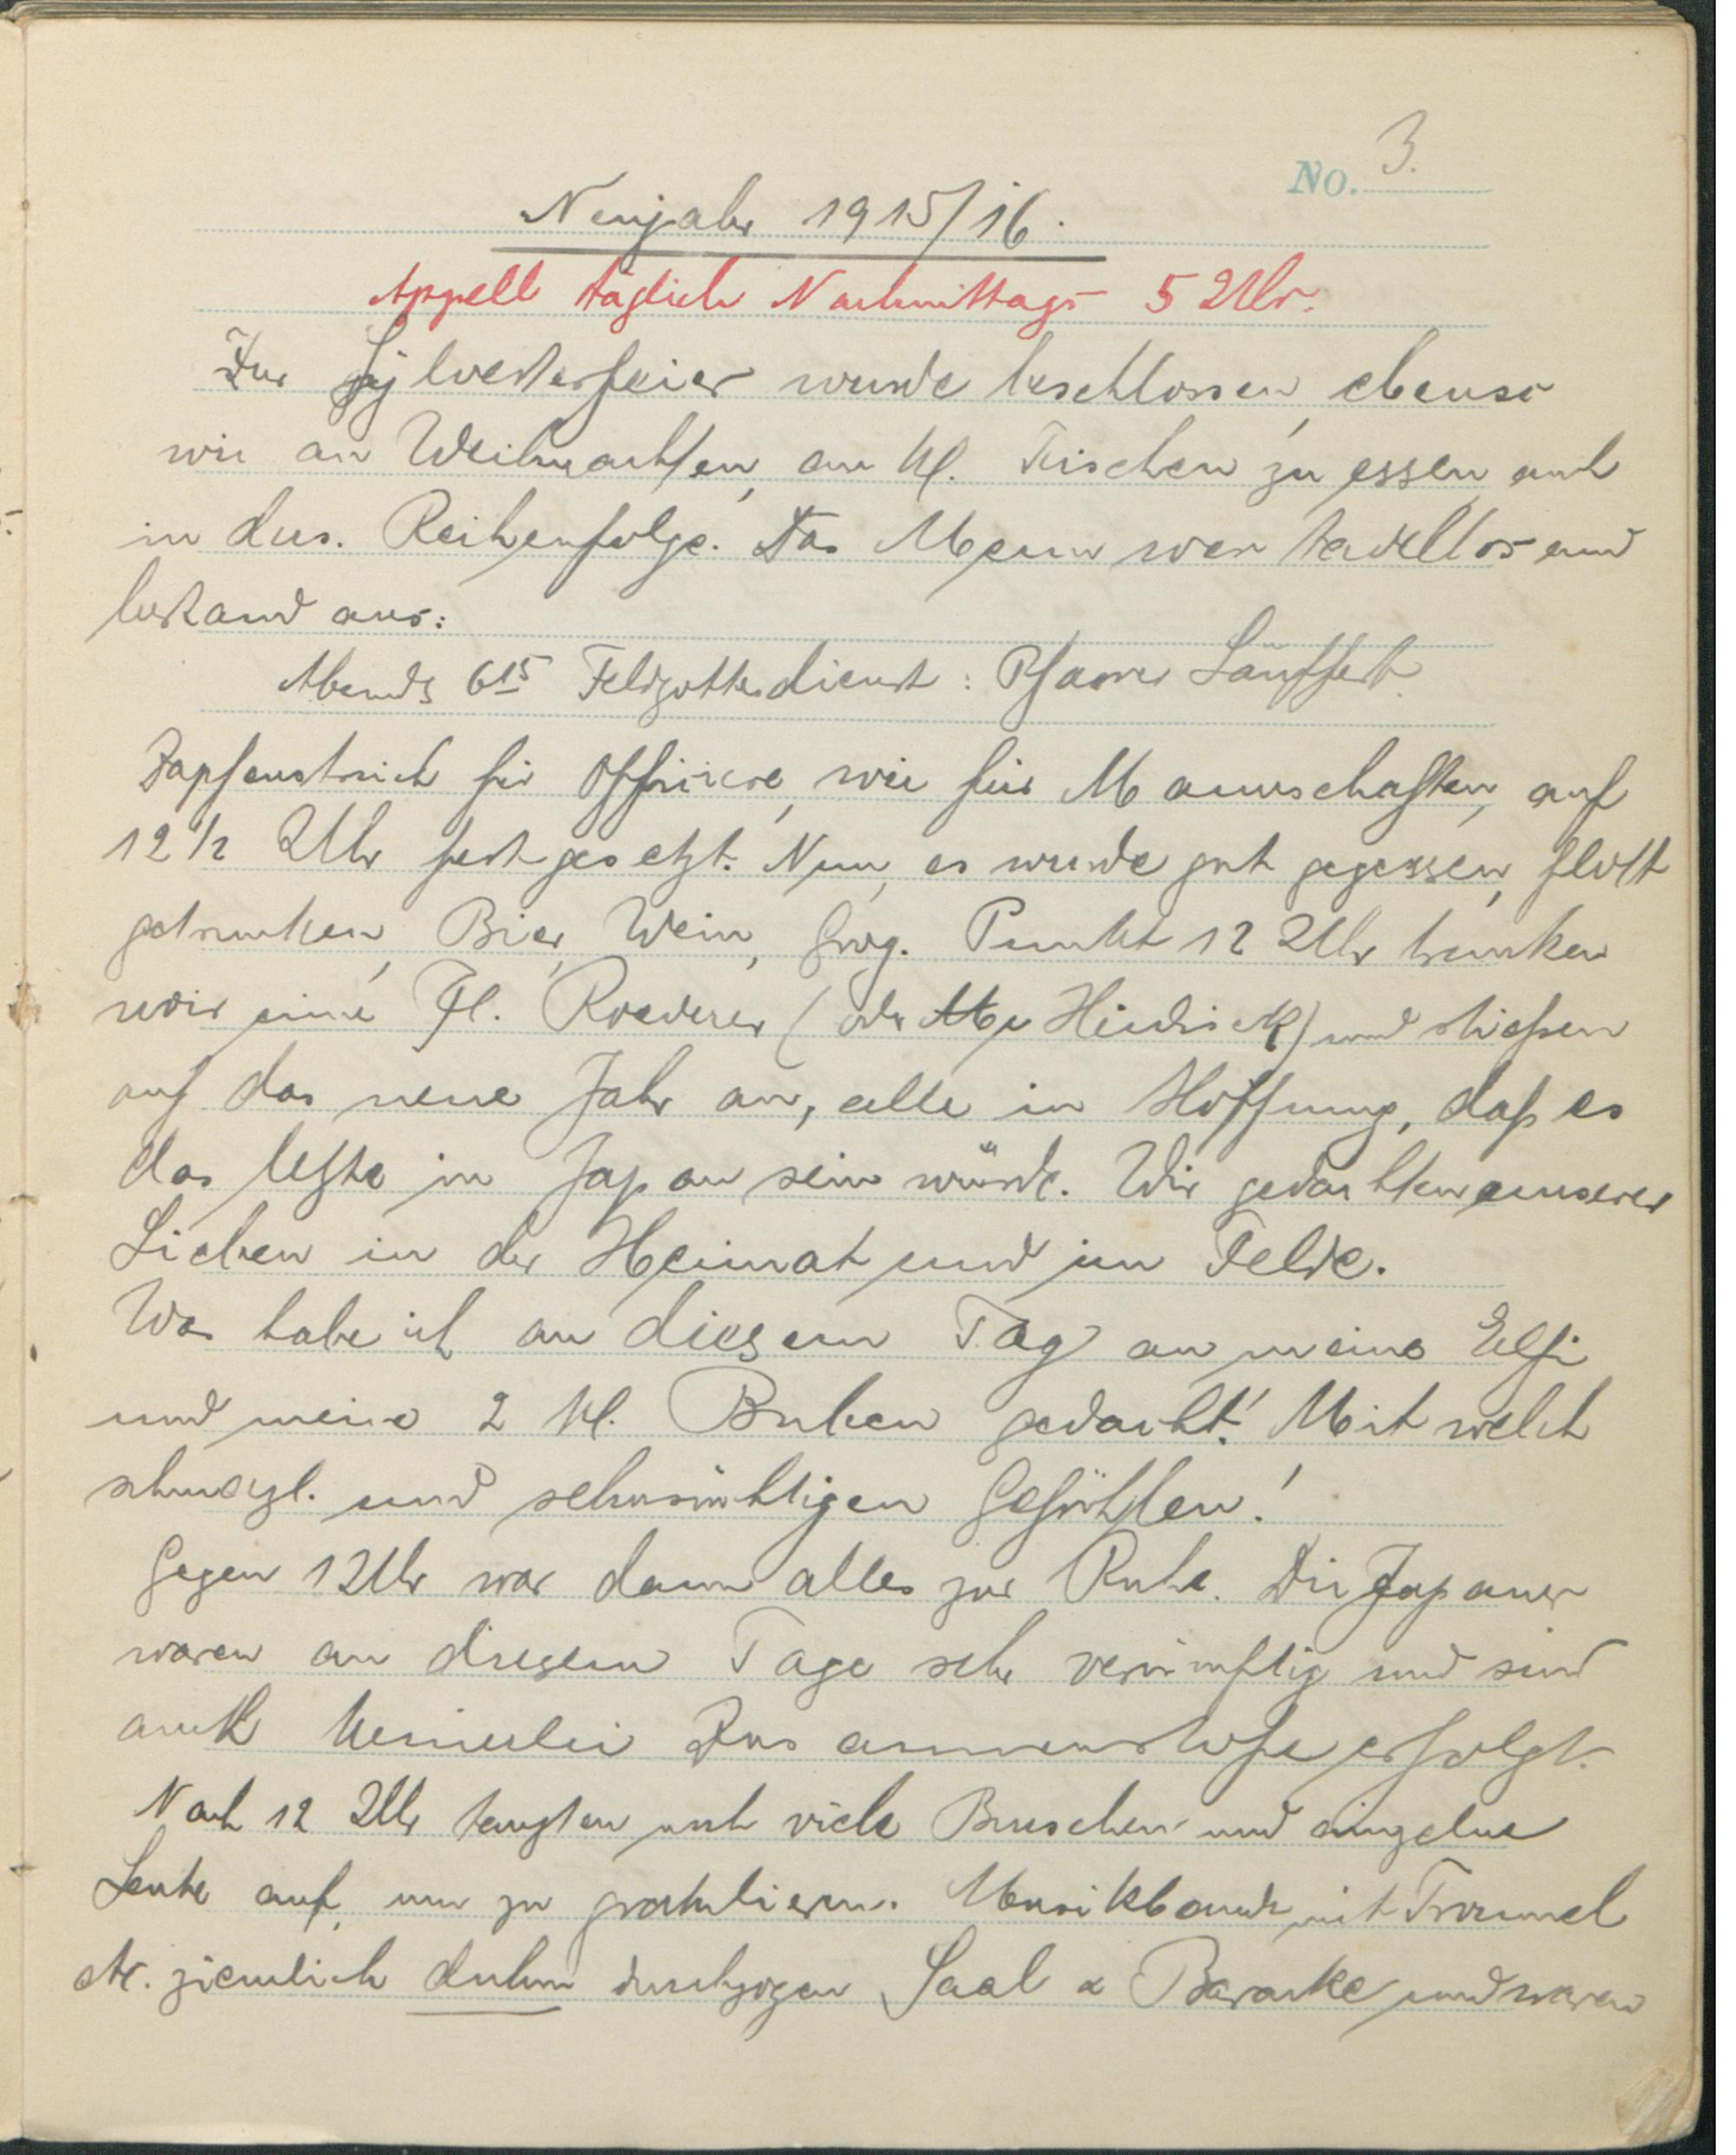 No. 3.
Neujahr 1915/16.
Appell täglich Nachmittags 5 Uhr.
Zur Sylvesterfeier wurde beschlossen, ebenso
wie an Weihnachten, an kl. Tischen zu essen und
in ders. Reihenfolge. Das Menu war tadellos und
bestand aus:
Abends 6 15 Feldgottesdienst: Pfarrer
Zapfenstreich für Offiziere, wie für Mannschaften, auf
12 1/2 Uhr festgesetzt. Nun, es wurde gut gegessen, flott
getrunken, Bier, Wein, Grog. Punkt 12 Uhr tranken
wir eine Fl. Roederer (oder Heidsick) und stießen
auf das neue Jahr an, alle in Hoffnung, daß es
das letzte in Japan sein würde. Wir gedachten unserer
Lieben in der Heimat und im Felde.
Was habe ich an diesem Tag an meine Elsi
und meine 2 kl. Buben gedacht! Mit welch
schmerzl. und sehnsüchtigen Gefühlen!
Gegen 1 Uhr war dann alles zur Ruhe. Die Japaner
waren an diesem Tage sehr vernünftig und sind
auch keinerlei Zusammenstöße erfolgt.
Nach 12 Uhr tanzten noch viele Burschen und einzelne
Leute auf, um zu gratulieren. Musikbande mit Trommel
etc. ziemlich duhn durchzogen Saal & Baracke und waren